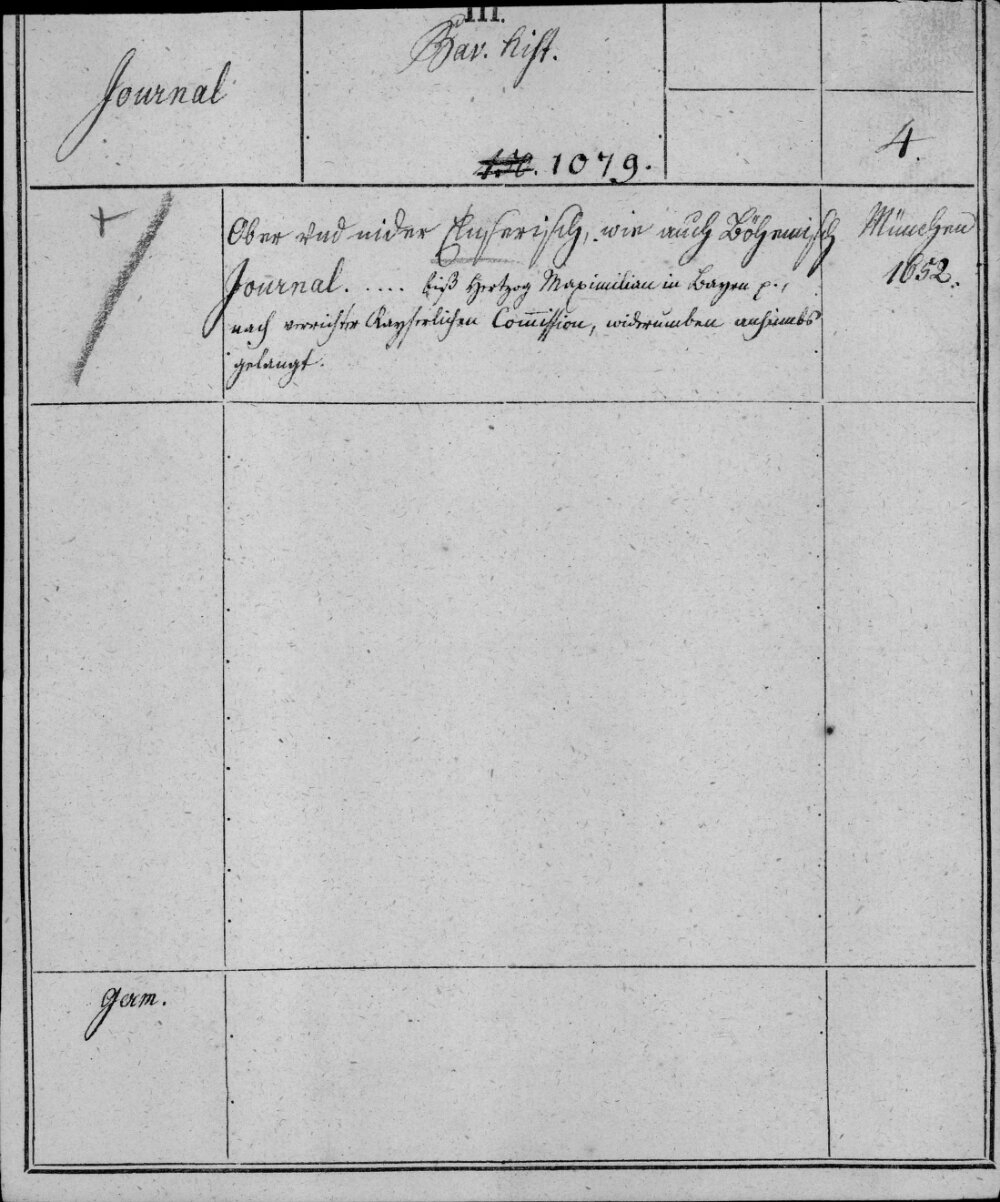 III.
Journal
Bav. hist.
4.
1079.
+
Ober vnd nider Ennserisch, wie auch Böhemisch
München
Journal. ..... biß Hertzog Maximilian in Bayrn p.,
1652.
nach verrichter Kayserlichen Com̄ission, widerumben anhaimbs
gelangt.
Germ.